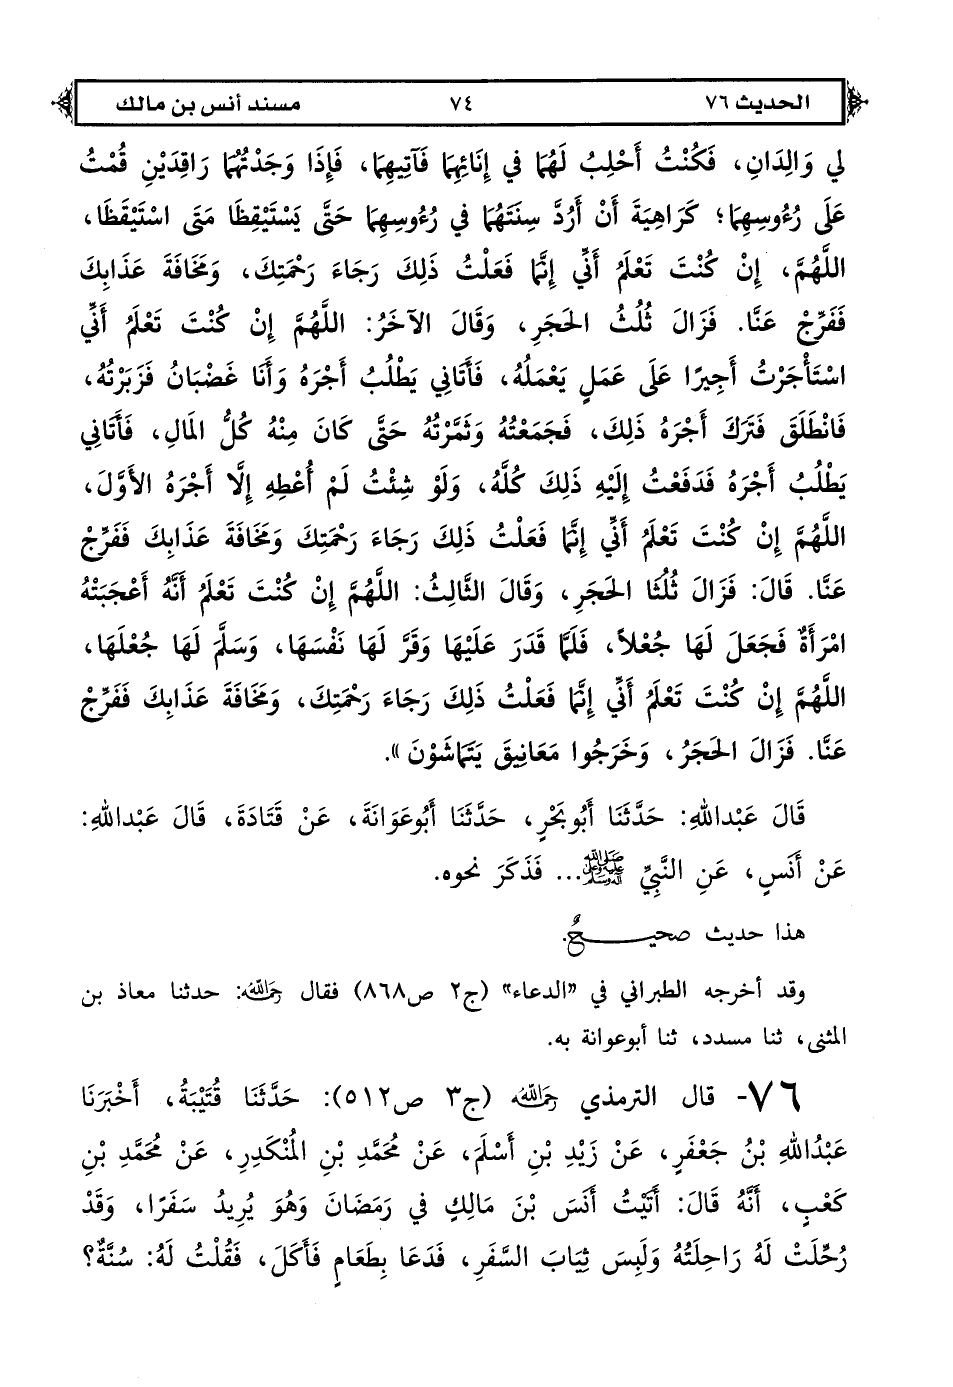 الحديث ٧٦ ٧٤ مسند أنس بن مالك
لي وَالِدَانِ، فَكُنْتُ أَحْلِبُ لَهُمَا في إِنَائِهِمَا فَآتِيهِمَا، فَإِذَا وَجَدْتُهُمَا رَاقِدَيْنِ قُمْتُ
عَلَى رُءُوسِهِمَا؛ كَرَاهِيَةَ أَنْ أَرُدَّ سِنَتَهُمَا في رُءُوسِهِمَا حَتَّى يَسْتَيْقِظَا مَتَى اسْتَيْقَظَا،
اللَّهُمَّ، إِنْ كُنْتَ تَعْلَمُ أَنِّي إِنَّمَا فَعَلْتُ ذَلِكَ رَجَاءَ رَحْمَتِكَ، وَمَخَافَةَ عَذَابِكَ
فَفَرِّجْ عَنَّا. فَزَالَ ثُلُثُ الحَجَرِ، وَقَالَ الآخَرُ: اللَّهُمَّ إِنْ كُنْتَ تَعْلَمُ أَنِّي
اسْتَأْجَرْتُ أَجِيرًا عَلَى عَمَلٍ يَعْمَلُهُ، فَأَتَانِي يَطْلُبُ أَجْرَهُ وَأَنَا غَضْبَانُ فَزَبَرْتُهُ،
فَانْطَلَقَ فَتَرَكَ أَجْرَهُ ذَلِكَ، فَجَمَعْتُهُ وَثَمَّرْتُهُ حَتَّى كَانَ مِنْهُ كُلُّ المَالِ، فَأَتَانِي
يَطْلُبُ أَجْرَهُ فَدَفَعْتُ إِلَيْهِ ذَلِكَ كُلَّهُ، وَلَوْ شِئْتُ لَمْ أُعْطِهِ إِلَّا أَجْرَهُ الأَوَّلَ،
اللَّهُمَّ إِنْ كُنْتَ تَعْلَمُ أَنِّي إِنَّمَا فَعَلْتُ ذَلِكَ رَجَاءَ رَحْمَتِكَ وَمَخَافَةَ عَذَابِكَ فَفَرِّجْ
عَنَّا. قَالَ: فَزَالَ ثُلُثَا الحَجَرِ، وَقَالَ الثَّالِثُ: اللَّهُمَّ إِنْ كُنْتَ تَعْلَمُ أَنَّهُ أَعْجَبَتْهُ
امْرَأَةٌ فَجَعَلَ لَهَا جُعْلاً، فَلَمَّا قَدَرَ عَلَيْهَا وَقَرَّ لَهَا نَفْسَهَا، وَسَلَّمَ لَهَا جُعْلَهَا،
اللَّهُمَّ إِنْ كُنْتَ تَعْلَمُ أَنِّي إِنَّمَا فَعَلْتُ ذَلِكَ رَجَاءَ رَحْمَتِكَ، وَمَخَافَةَ عَذَابِكَ فَفَرِّجْ
عَنَّا. فَزَالَ الحَجَرُ، وَخَرَجُوا مَعَانِيقَ يَتَمَاشَوْنَ».
قَالَ عَبْدُاللهِ: حَدَّثَنَا أَبُو بَحْرٍ، حَدَّثَنَا أَبُو عَوَانَةَ، عَنْ قَتَادَةَ، قَالَ عَبْدُاللهِ:
عَنْ أَنَسٍ، عَنِ النَّبِيِّ ﷺ... فَذَكَرَ نحوه.
هذا حديث صحيـــــحٌ.
وقد أخرجه الطبراني في «الدعاء» (ج٢ ص٨٦٨) فقال رحمه الله: حدثنا معاذ بن
المثنى، ثنا مسدد، ثنا أبو عوانة به.
٧٦- قال الترمذي رحمه الله (ج٣ ص٥١٢): حَدَّثَنَا قُتَيْبَةُ، أَخْبَرَنَا
عَبْدُاللهِ بْنُ جَعْفَرٍ، عَنْ زَيْدِ بْنِ أَسْلَمَ، عَنْ مُحَمَّدِ بْنِ المُنْكَدِرِ، عَنْ مُحَمَّدِ بْنِ
كَعْبٍ، أَنَّهُ قَالَ: أَتَيْتُ أَنَسَ بْنَ مَالِكٍ في رَمَضَانَ وَهُوَ يُرِيدُ سَفَرًا، وَقَدْ
رُحِّلَتْ لَهُ رَاحِلَتُهُ وَلَبِسَ ثِيَابَ السَّفَرِ، فَدَعَا بِطَعَامٍ فَأَكَلَ، فَقُلْتُ لَهُ: سُنَّةٌ؟